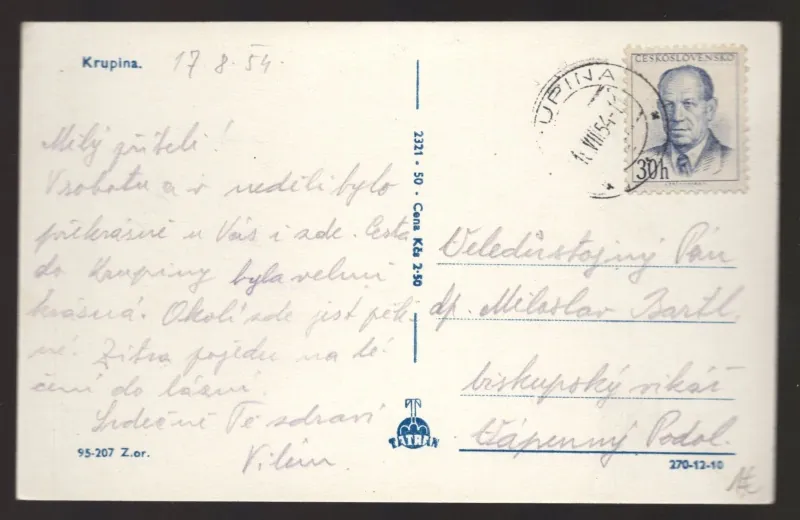 Krupina. 17 8. 54.
Milý příteli!
V sobotu a v neděli bylo
překrásně u Vás i zde. Cesta
do Krupiny byla velmi
krásná. Okolí zde jest pěk-
né. Zítra pojedu na lé-
čení do lázní.
Srdečně Tě zdraví
Vilém.
95-207 Z.or.
2321 - 50 - Cena Kčs 2·50
TATRAN
UPINA
VIII.54
ČESKOSLOVENSKO
30h
Veledůstojný Pán
dp. Miloslav Bartl.
biskupský vikář
Vápenný Podol.
270-12-10